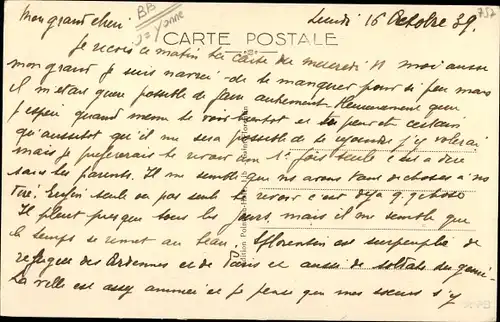 Lundi 16 Octobre 39.
Mon grand chéri.
BB
Yonne
752
CARTE POSTALE
Je reçois ce matin ta carte du mercredi 11 moi aussi
mon grand je suis navrée de te manquer pour si peu mais
il m'était guère possible de faire autrement. Heureusement que
j'espère quand même te voir bientôt et peut certain
qu'aussitôt qu'il me sera possible de te rejoindre j'y volerai
mais je préférerais te revoir la 1e fois seule c'est à dire
sans les parents. Il me semble que nous avons tant de choses à nous
dire. Enfin seule ou pas seule te revoir c'est déjà q. chose
Il pleut presque tous les jours, mais il me semble que
le temps se remet au beau. St Florentin est surpeuplé de
réfugiés des Ardennes et de Paris et aussi de soldats du génie.
La ville est assez animée et je pense que mes sœurs s'y